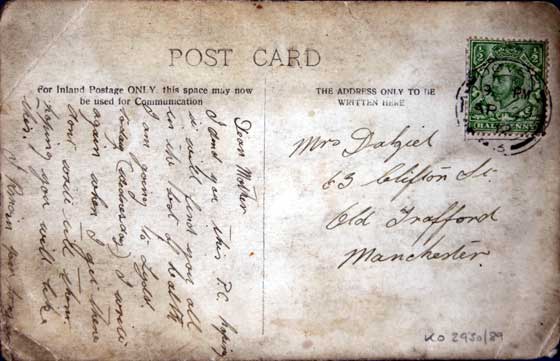 POST CARD
For Inland Postage ONLY, this space may now
be used for Communication
THE ADDRESS ONLY TO BE
WRITTEN HERE
Dear Mother
I send you this P.C. hoping
it will find you all
in the best of health
I am going to
today (Saturday) I will
again when I get there
will
hoping you will like
this. I Remain your
Mrs Dalziel
63 Clifton St.
Old Trafford
Manchester.
HALFPENNY
KO 2950/89